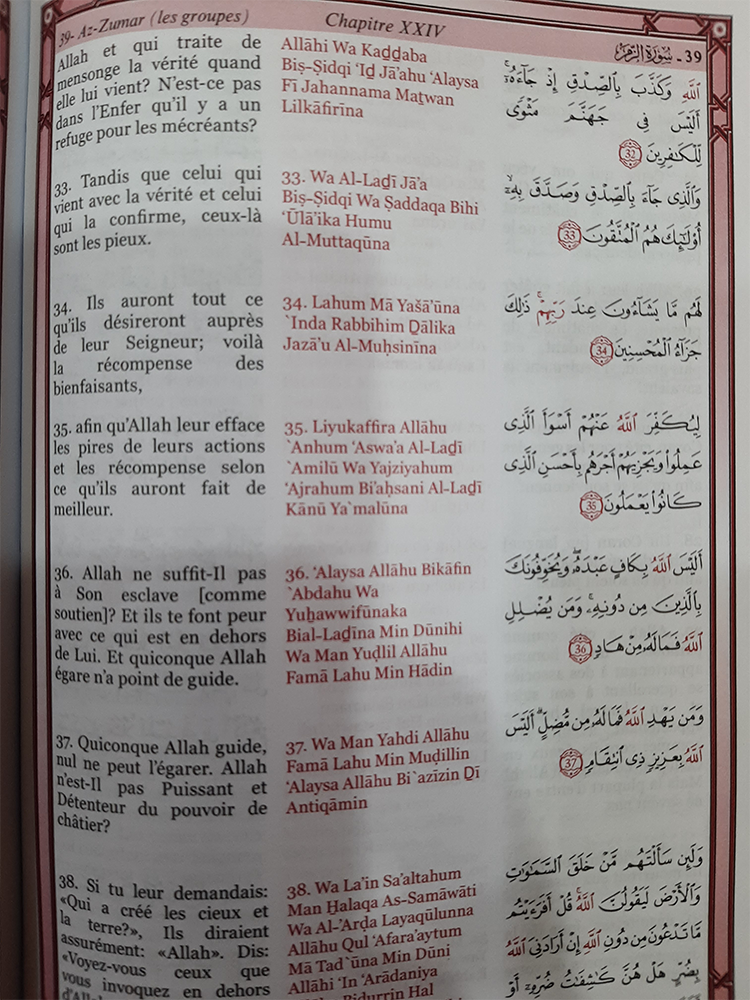 39- Az-Zumar (les groupes)
Chapitre XXIV
39 - سُورَةُ الزُّمَرِ
Allah et qui traite de
mensonge la vérité quand
elle lui vient? N’est-ce pas
dans l’Enfer qu’il y a un
refuge pour les mécréants?
33. Tandis que celui qui
vient avec la vérité et celui
qui la confirme, ceux-là
sont les pieux.
34. Ils auront tout ce
qu’ils désireront auprès
de leur Seigneur; voilà
la récompense des
bienfaisants,
35. afin qu’Allah leur efface
les pires de leurs actions
et les récompense selon
ce qu’ils auront fait de
meilleur.
36. Allah ne suffit-Il pas
à Son esclave [comme
soutien]? Et ils te font peur
avec ce qui est en dehors
de Lui. Et quiconque Allah
égare n’a point de guide.
37. Quiconque Allah guide,
nul ne peut l’égarer. Allah
n’est-Il pas Puissant et
Détenteur du pouvoir de
châtier?
38. Si tu leur demandais:
«Qui a créé les cieux et
la terre?», Ils diraient
assurément: «Allah». Dis:
«Voyez-vous ceux que
vous invoquez en dehors
Allāhi Wa Kaḏḏaba
Biṣ-Ṣidqi ‘Iḏ Jā’ahu ‘Alaysa
Fī Jahannama Maṯwan
Lilkāfirīna
33. Wa Al-Laḏī Jā’a
Biṣ-Ṣidqi Wa Ṣaddaqa Bihi
‘Ūlā’ika Humu
Al-Muttaqūna
34. Lahum Mā Yašā’ūna
`Inda Rabbihim Ḏālika
Jazā’u Al-Muḥsinīna
35. Liyukaffira Allāhu
`Anhum ‘Aswa’a Al-Laḏī
`Amilū Wa Yajziyahum
‘Ajrahum Bi’aḥsani Al-Laḏī
Kānū Ya`malūna
36. ‘Alaysa Allāhu Bikāfin
`Abdahu Wa
Yuẖawwifūnaka
Bial-Laḏīna Min Dūnihi
Wa Man Yuḍlil Allāhu
Famā Lahu Min Hādin
37. Wa Man Yahdi Allāhu
Famā Lahu Min Muḍillin
‘Alaysa Allāhu Bi`azīzin Ḏī
Antiqāmin
38. Wa La’in Sa’altahum
Man H̱alaqa As-Samāwāti
Wa Al-’Arḍa Layaqūlunna
Allāhu Qul ‘Afara’aytum
Mā Tad`ūna Min Dūni
Allāhi ‘In ‘Arādaniya
Biḍurrin Hal
ٱللَّهِ وَكَذَّبَ بِٱلصِّدۡقِ إِذۡ جَآءَهُۥٓۚ
أَلَيۡسَ فِي جَهَنَّمَ مَثۡوٗى
لِّلۡكَٰفِرِينَ 32
وَٱلَّذِي جَآءَ بِٱلصِّدۡقِ وَصَدَّقَ بِهِۦٓۙ
أُوْلَٰٓئِكَ هُمُ ٱلۡمُتَّقُونَ 33
لَهُم مَّا يَشَآءُونَ عِندَ رَبِّهِمۡۚ ذَٰلِكَ
جَزَآءُ ٱلۡمُحۡسِنِينَ 34
لِيُكَفِّرَ ٱللَّهُ عَنۡهُمۡ أَسۡوَأَ ٱلَّذِي
عَمِلُواْ وَيَجۡزِيَهُمۡ أَجۡرَهُم بِأَحۡسَنِ ٱلَّذِي
كَانُواْ يَعۡمَلُونَ 35
أَلَيۡسَ ٱللَّهُ بِكَافٍ عَبۡدَهُۥۖ وَيُخَوِّفُونَكَ
بِٱلَّذِينَ مِن دُونِهِۦۚ وَمَن يُضۡلِلِ
ٱللَّهُ فَمَا لَهُۥ مِنۡ هَادٖ 36
وَمَن يَهۡدِ ٱللَّهُ فَمَا لَهُۥ مِن مُّضِلٍّۗ أَلَيۡسَ
ٱللَّهُ بِعَزِيزٖ ذِي ٱنتِقَامٖ 37
وَلَئِن سَأَلۡتَهُم مَّنۡ خَلَقَ ٱلسَّمَٰوَٰتِ
وَٱلۡأَرۡضَ لَيَقُولُنَّ ٱللَّهُۚ قُلۡ أَفَرَءَيۡتُم
مَّا تَدۡعُونَ مِن دُونِ ٱللَّهِ إِنۡ أَرَادَنِيَ ٱللَّهُ
بِضُرٍّ هَلۡ هُنَّ كَٰشِفَٰتُ ضُرِّهِۦٓ أَوۡ